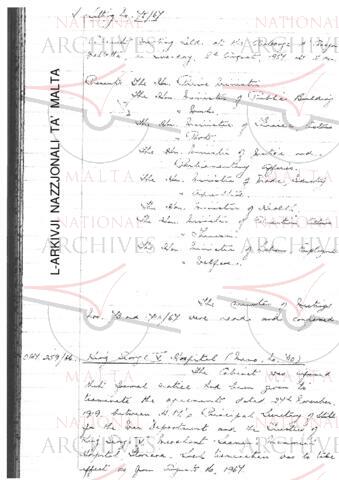 Sitting No 75/67
Cabinet Meeting held at the Auberge d'Aragon
Valletta, on Tuesday, 8th August, 1967 at 5 pm.
Present: The Hon. Prime Minister
The Hon. Minister of Public Building
& Works.
The Hon. Minister of
The Hon. Minister of Justice and
Parliamentary Affairs.
The Hon. Minister of Trade, Industry
& Agriculture.
The Hon. Minister of Health.
The Hon. Minister of Education, Culture
& Tourism.
The Hon. Minister of Labour, Employment
& Welfare.
The minutes of Meetings
Nos. and 74/67 were read and confirmed
OPM 259/66. King George V Hospital (Memo. No. 70)
The Cabinet was informed
that formal notice had been given to
terminate the agreement dated 24th November,
1919, between H.M's Principal Secretary of State
for the War Department and the Trustees of
King George V Merchant Seamen Memorial
Hospital, Floriana. Such termination was to take
effect as from August 16, 1967
L-ARKIVJI NAZZJONALI TA' MALTA
NATIONAL
ARCHIVES
MALTA